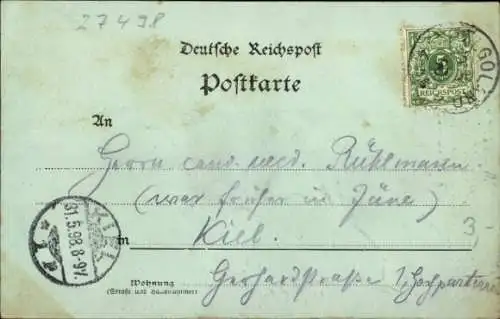 27498
Deutsche Reichspost
Postkarte
5
REICHSPOST
GOL
An
Herrn cand. med. Rühlmann
(war früher in Jüne)
in Kiel
3-
Gerhardstraße 1, Hochparterre
Wohnung
(Straße und Hausnummer)
KIEL
31.5.98.8-9V.
* 1 *